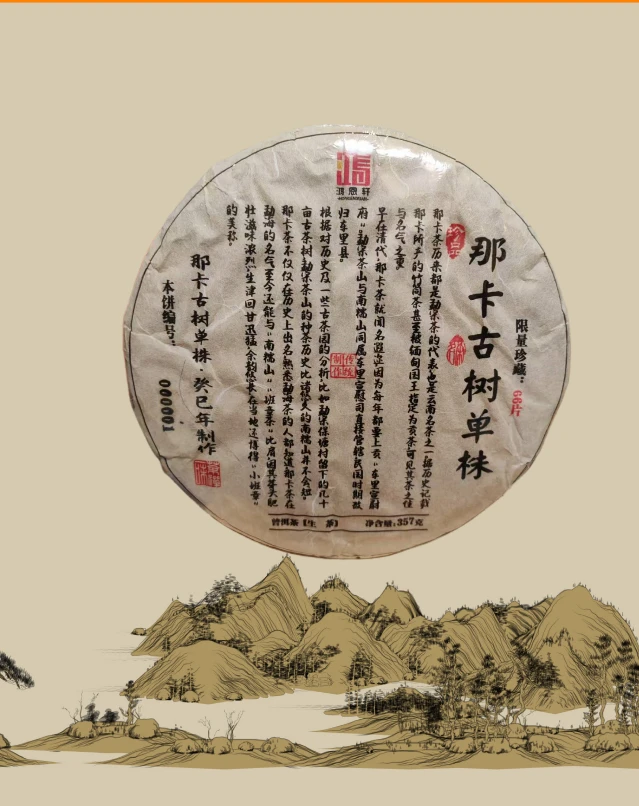 鸿恩轩
限量珍藏：66片
那卡古树单株
珍品
那卡茶历来都是勐宋茶的代表也是云南名茶之一据历史记载
那卡所产的竹筒茶甚至被缅甸国王指定为贡茶可见其茶之佳
与名气之重
早在清代那卡茶就闻名遐迩因为每年都要上贡"车里宣慰
府"勐宋茶山与南糯山同属车里宣慰司直接管辖民国时期改
归车里县
传统制作
根据对历史及一些古茶园的分析比如勐宋保塘村留下的几十
亩古茶树勐宋茶山的种茶历史比诸悠久的南糯山并不会短
那卡茶不仅仅在历史上出名熟悉勐海茶的人都知道那卡茶在
勐海的名气至今还能与"南糯山""班章茶"比肩因其茶大肥
壮滋味浓烈生津回甘迅猛余韵悠长在当地还博得"小班章"
的美称。
那卡古树单株·癸巳年制作
本饼编号：000001
普洱茶（生 茶） 净含量:357克